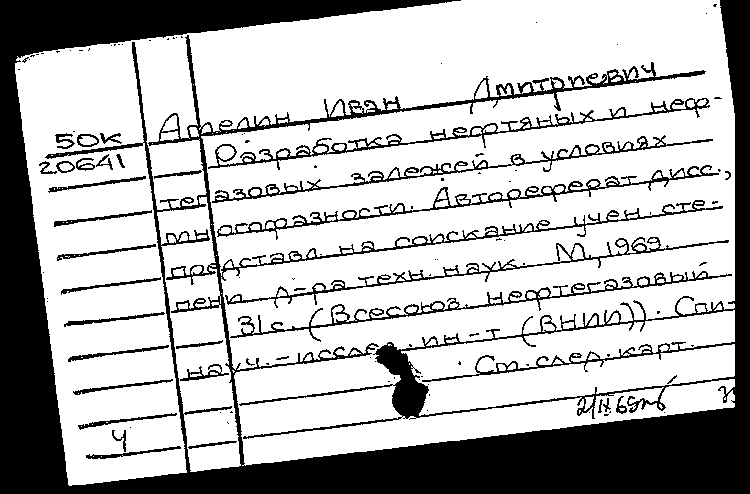 Амелин, Иван Дмитриевич
50К
20641
Разработка нефтяных и неф-
тегазовых залежей в условиях
многофазности. Автореферат дисс.,
представл. на соискание учен. сте-
пени д-ра техн. наук. М., 1969.
31с. (Всесоюз. нефтегазовый
науч.-исслед. ин-т (ВНИИ)). Спи-
См. след. карт.
Ч